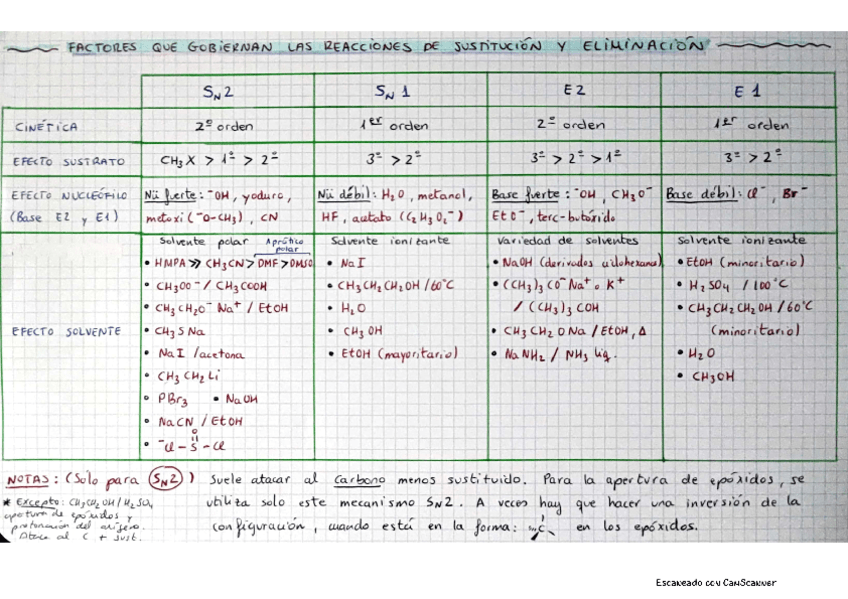 FACTORES QUE GOBIERNAN LAS REACCIONES DE SUSTITUCIÓN Y ELIMINACIÓN
SN2 SN1 E2 E1
CINÉTICA 2º orden 1er orden 2º orden 1er orden
EFECTO SUSTRATO CH3X > 1º > 2º 3º > 2º 3º > 2º > 1º 3º > 2º
EFECTO NUCLEÓFILO (Base E2 y E1)
Nü fuerte: ⁻OH, yoduro, metoxi (⁻O-CH3), CN
Nü débil: H2O, metanol, HF, acetato (C2H3O2⁻)
Base fuerte: ⁻OH, CH3O⁻ EtO⁻, terc-butóxido
Base débil: Cl⁻, Br⁻
EFECTO SOLVENTE
Solvente polar Aprótico polar
• HMPA >> CH3CN > DMF > DMSO
• CH3OO⁻ / CH3COOH
• CH3CH2O⁻ Na⁺ / EtOH
• CH3SNa
• NaI / acetona
• CH3CH2Li
• PBr3 • NaOH
• NaCN / EtOH
• ⁻Cl-S-Cl
O
Solvente ionizante
• NaI
• CH3CH2CH2OH / 60°C
• H2O
• CH3OH
• EtOH (mayoritario)
Variedad de solventes
• NaOH (derivados ciclohexano)
• (CH3)3CO⁻Na⁺ o K⁺
/ (CH3)3COH
• CH3CH2ONa / EtOH, Δ
• NaNH2 / NH3 liq.
Solvente ionizante
• EtOH (minoritario)
• H2SO4 / 100°C
• CH3CH2CH2OH / 60°C
(minoritario)
• H2O
• CH3OH
NOTAS: (Sólo para SN2) Suele atacar al carbono menos sustituido. Para la apertura de epóxidos, se
utiliza solo este mecanismo SN2. A veces hay que hacer una inversión de la
configuración, cuando está en la forma: C en los epóxidos.
* Excepto: CH3CH2OH/H2SO4
apertura de epóxidos y
protonación del oxígeno.
Ataca al C + sust.
Escaneado con CamScanner